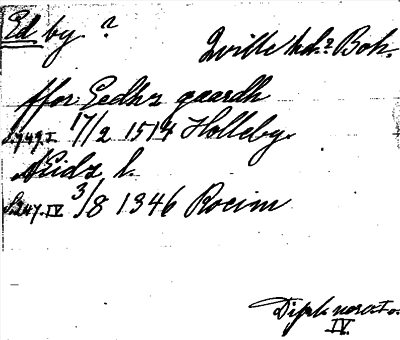 Ed by ?
Tville hd? Boh.
ffor Eedhz gaardh
S.749.I 17/2 1514 Holleby.
Eidz l.
S.247.IV 3/8 1346 Roeim
Dipl. norv.
IV.